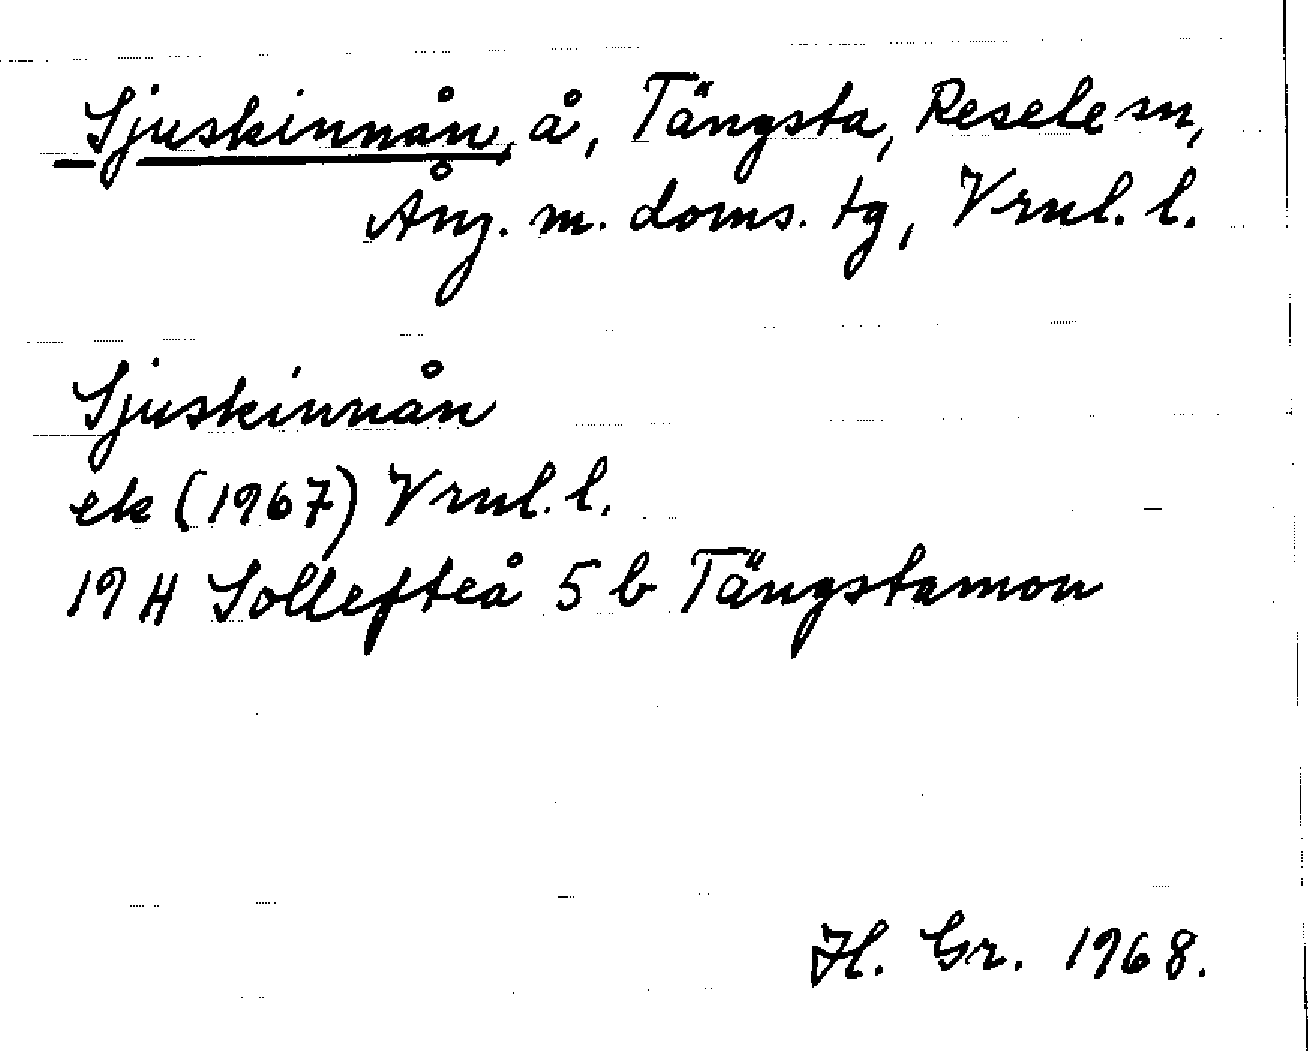 Sjuskinnån, å, Tängsta, Resele sn,
Ång. m. doms. tg, Vrnl. l.
Sjuskinnån
ek (1967) Vrnl. l.
19 H Sollefteå 5 b Tängstamon
H. Gr. 1968.